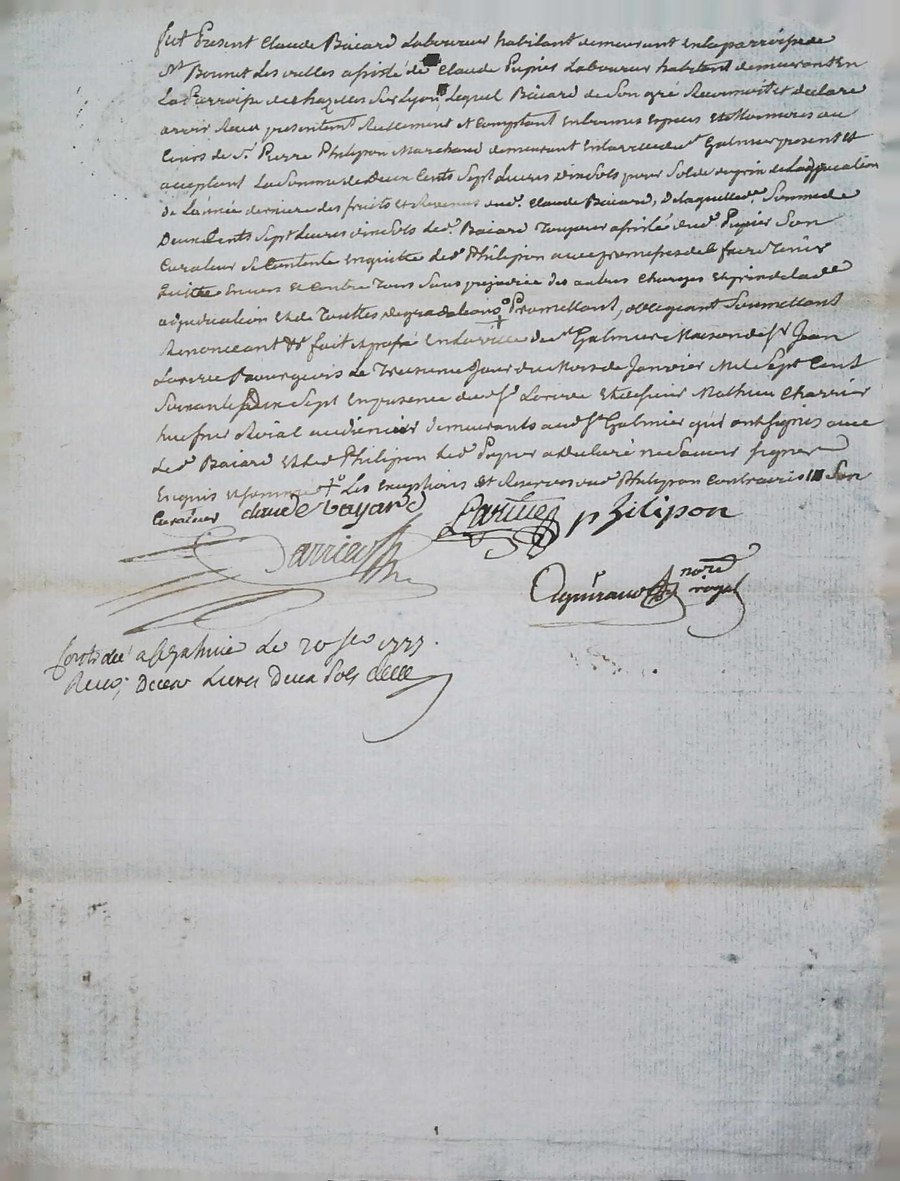 fut Present Claude Baiard Laboureur habitant demeurant en la parroisse de
St Bonnet Les oulles assisté de Claude Pupier Laboureur habitant demeurant En
La Parroisse de chazelles Sur Lyon Lequel Baiard de Son gré Reconnoit et declare
avoir Receu presentemt Reellement et Comptant En bonnes Especes et Monnoies au
Cours de Sr Pierre Philipon Marchand demeurant En la ville de St Galmier present et
aceptant La Somme de Deux Cents Sept Livres vin Sols pour Solde du prix de Ladjudication
de L'année derniere des fruits et Revenus dud. Claude Baiard, De laquelle de. Somme de
Deux Cents Sept Livres vin Sols led. Baiard Toujours assisté dud. Pupier Son
Curateur Se Contente En quitte led. Philipon avec promesses de le faire Tenir
Quitte Envers et Contre Tous Sans prejudice des autres Charges et prix de lade
adjudication et de Touttes degradations Promettant, obligeant Soumettant
Renonceant &c fait et passé En la ville de St Galmier Maison de Sr Jean
Bourgeois Le Treizieme Jour du Mois de Janvier Mil Sept Cent
Soixante dix Sept En presence dud. Sr et de Sieur Mathieu Charrier
huissier Roial audiencier demeurants aud. St Galmier qui ont signés avec
Led. Baiard et led. Philipon led. Pupier a declaré ne Savoir signer
Enquis et sommé Les Exceptions et Reserves dud. Philipon Contraires Son
Curateur claude bayard philipon
Carrier
nore
royal
a St galmier Le 20 1777.
Receu Deux Livres Deux Sols